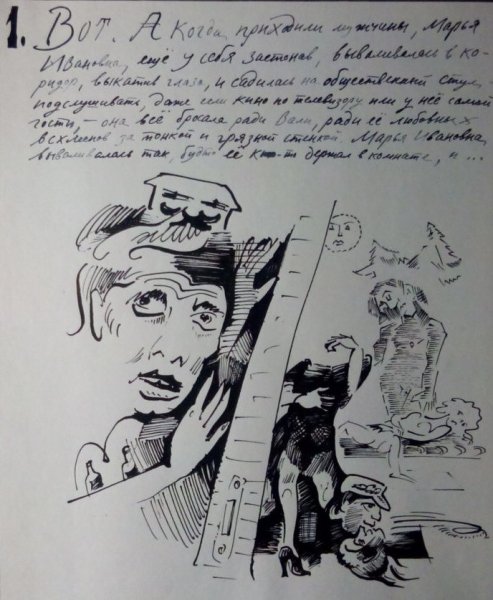 1. Вот. А когда приходили мужчины, Марья
Ивановна, ещё у себя застонав, вываливалась в ко-
ридор, выкатив глаза, и садилась на общественный стул
подслушивать, даже если кино по телевизору или у неё самой
гости, – она всё бросала ради Вали, ради её любовных
всхлёстов за тонкой и грязной стенкой. Марья Ивановна
вываливалась так, будто её кто-то держал в комнате, и ...